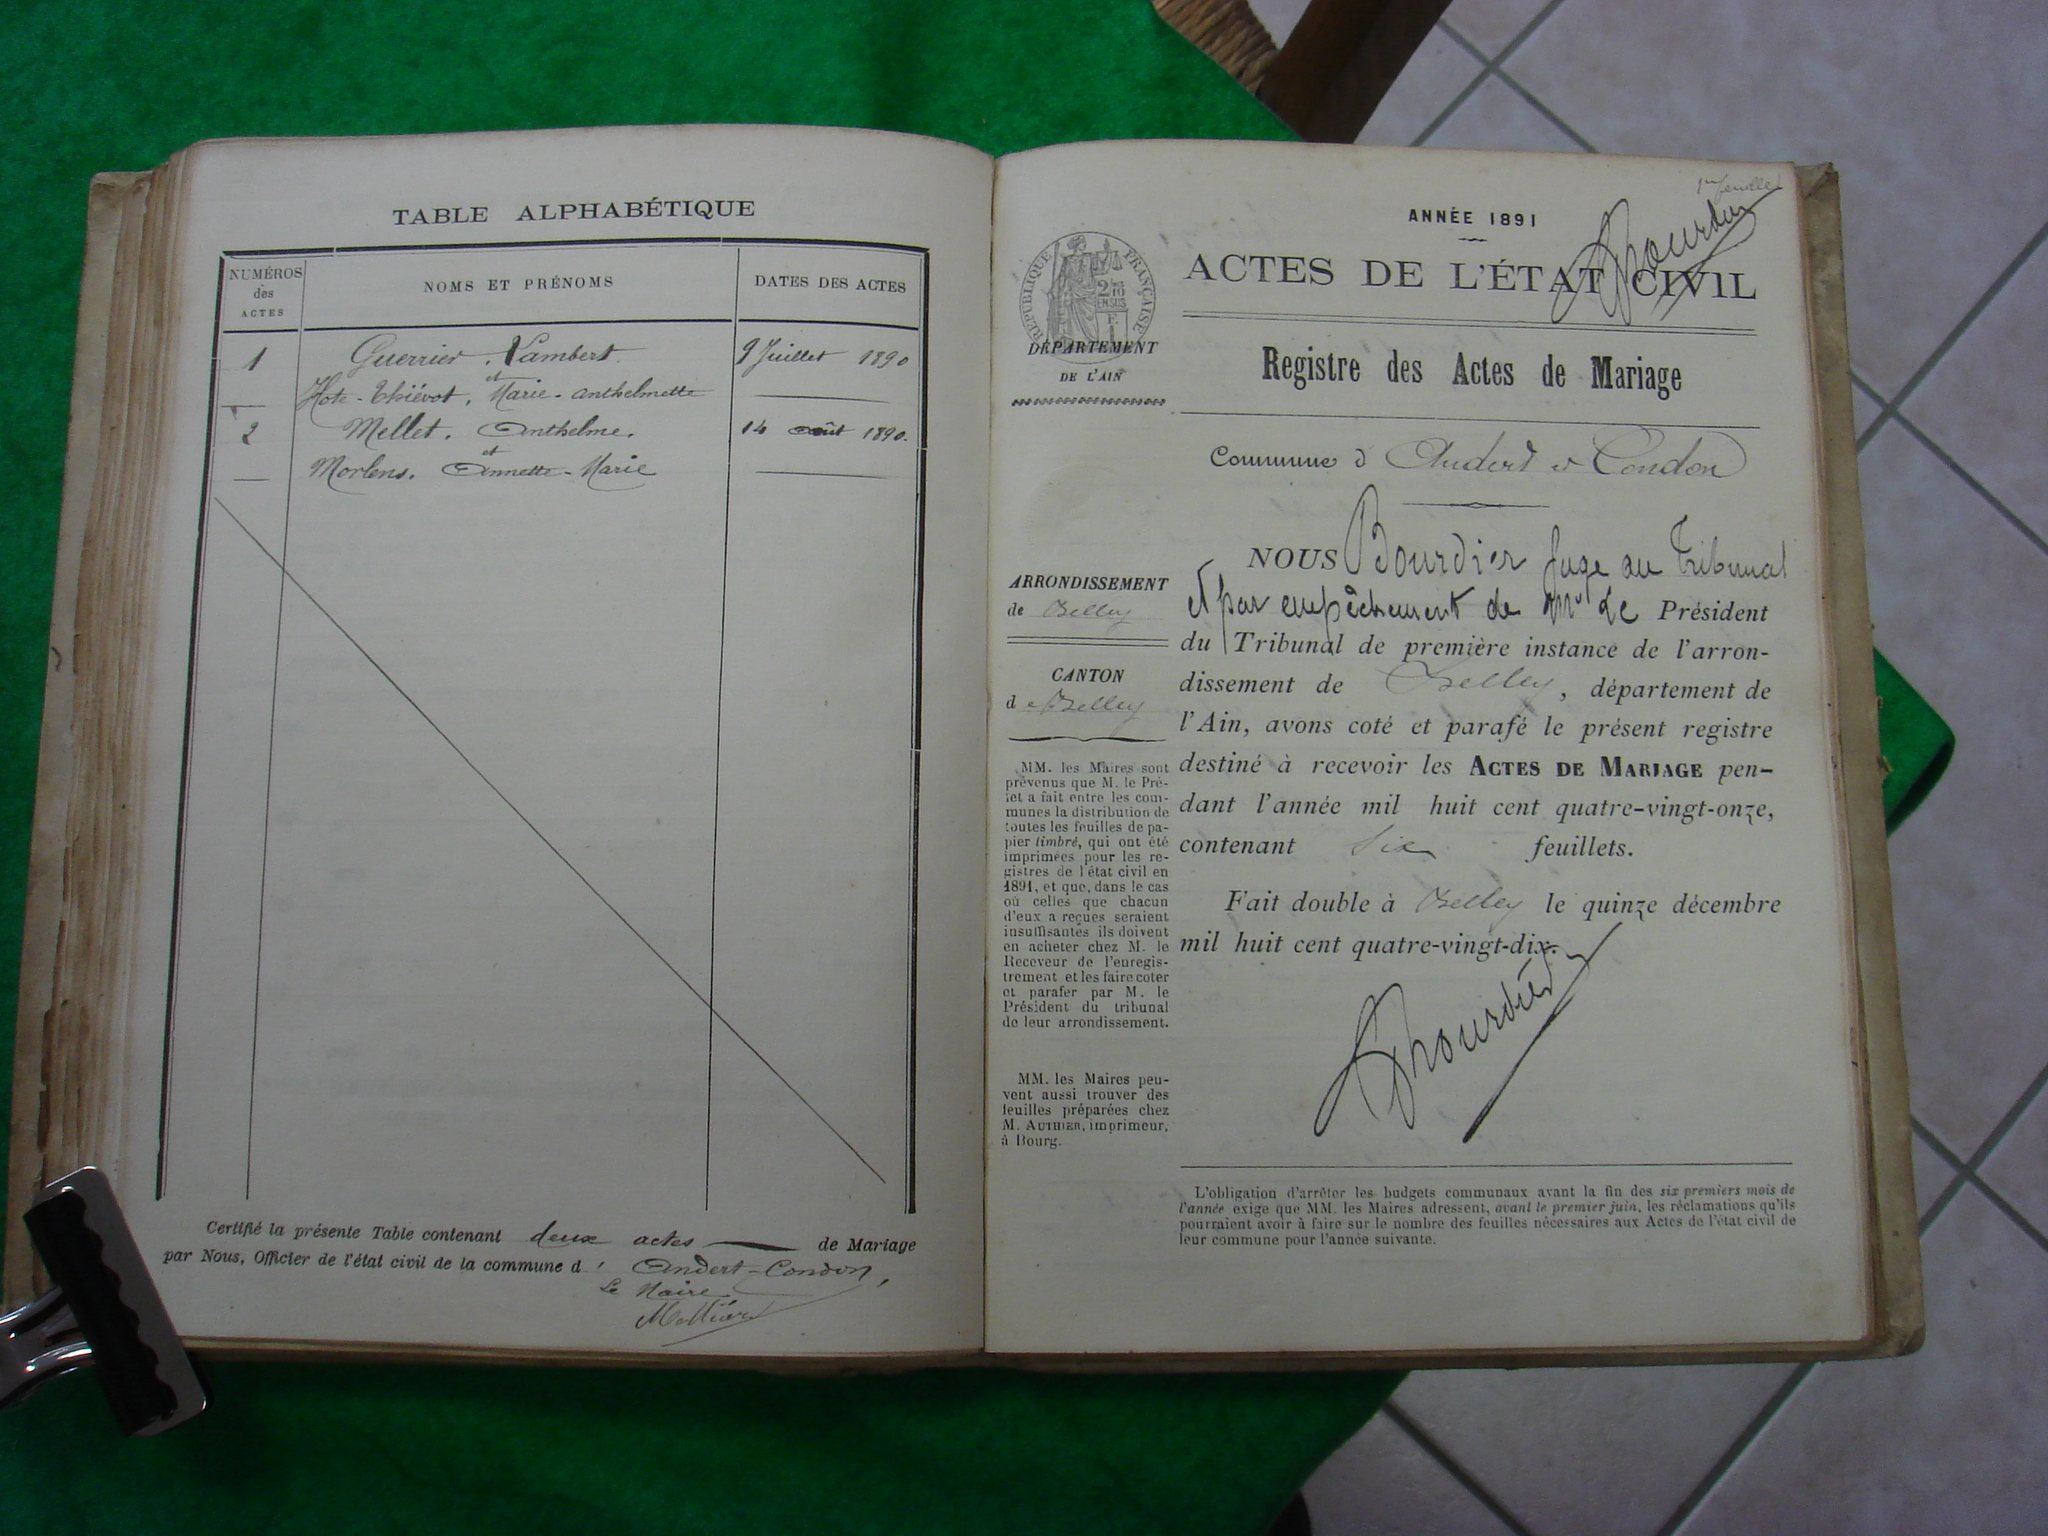 TABLE ALPHABÉTIQUE
NUMÉROS des ACTES
NOMS ET PRÉNOMS
DATES DES ACTES
1 Guerrier, Lambert 9 Juillet 1890
et
Hote-Thiévot, Marie-Anthelmette
2 Mellet, Anthelme. 14 août 1890.
et
Morlens, Annette-Marie
Certifié la présente Table contenant deux actes de Mariage
par Nous, Officier de l'état civil de la commune d' Andert-Condon,
Le Maire
1er feuillet
ANNÉE 1891
ACTES DE L'ÉTAT CIVIL
RÉPUBLIQUE FRANÇAISE
DÉPARTEMENT
DE L'AIN
Registre des Actes de Mariage
Commune d'Andert et Condon
ARRONDISSEMENT
de Belley
CANTON
de Belley
MM. les Maires sont
prévenus que M. le Pré-
fet a fait entre les com-
munes la distribution de
toutes les feuilles de pa-
pier timbré, qui ont été
imprimées pour les re-
gistres de l'état civil en
1891, et que, dans le cas
où celles que chacun
d'eux a reçues seraient
insuffisantes ils doivent
en acheter chez M. le
Receveur de l'enregis-
trement et les faire coter
et parafer par M. le
Président du tribunal
de leur arrondissement.
MM. les Maires peu-
vent aussi trouver des
feuilles préparées chez
M. AUTHIER, imprimeur,
à Bourg.
NOUS Bourdier Juge au Tribunal
et par empêchement de Mr Le Président
du Tribunal de première instance de l'arron-
dissement de Belley, département de
l'Ain, avons coté et parafé le présent registre
destiné à recevoir les ACTES DE MARIAGE pen-
dant l'année mil huit cent quatre-vingt-onze,
contenant six feuillets.
Fait double à Belley le quinze décembre
mil huit cent quatre-vingt-dix.
Bourdier
L'obligation d'arrêter les budgets communaux avant la fin des six premiers mois de
l'année exige que MM. les Maires adressent, avant le premier juin, les réclamations qu'ils
pourraient avoir à faire sur le nombre des feuilles nécessaires aux Actes de l'état civil de
leur commune pour l'année suivante.